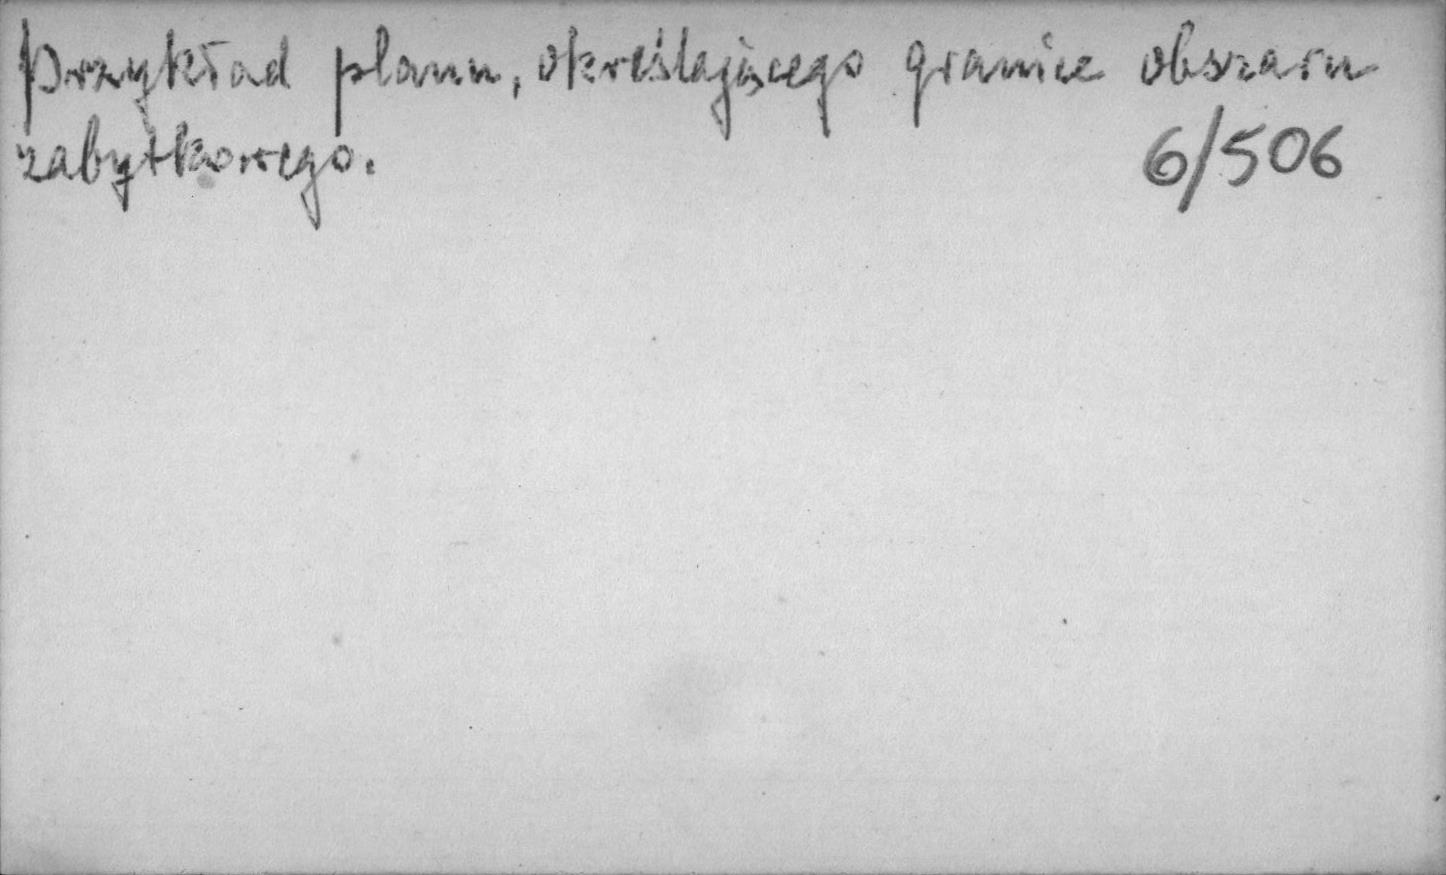 Przykład planu, określającego granice obszaru
zabytkowego.
6/506